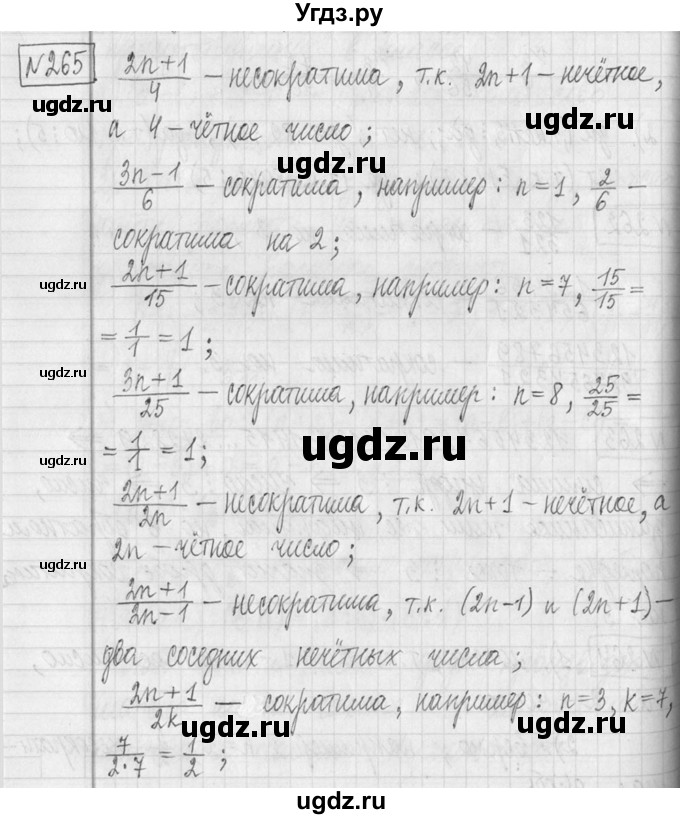 Угдз.ру
№265. (2n+1)/4 – несократима, т.к. 2n+1 – нечётное,
а 4 – чётное число;
(3n-1)/6 – сократима, например: n=1, 2/6 –
сократима на 2;
(2n+1)/15 – сократима, например: n=7, 15/15 =
= 1/1 = 1;
(3n+1)/25 – сократима, например: n=8, 25/25 =
= 1/1 = 1;
(2n+1)/2n – несократима, т.к. 2n+1 – нечётное, а
2n – чётное число;
(2n+1)/(2n-1) – несократима, т.к. (2n-1) и (2n+1) –
два соседних нечётных числа;
(2n+1)/2k – сократима, например: n=3, k=7,
7/(2·7) = 1/2;
ugdz.ru
ugdz.ru
ugdz.ru
ugdz.ru
ugdz.ru
ugdz.ru
ugdz.ru
ugdz.ru
ugdz.ru
ugdz.ru
ugdz.ru
ugdz.ru
ugdz.ru
ugdz.ru